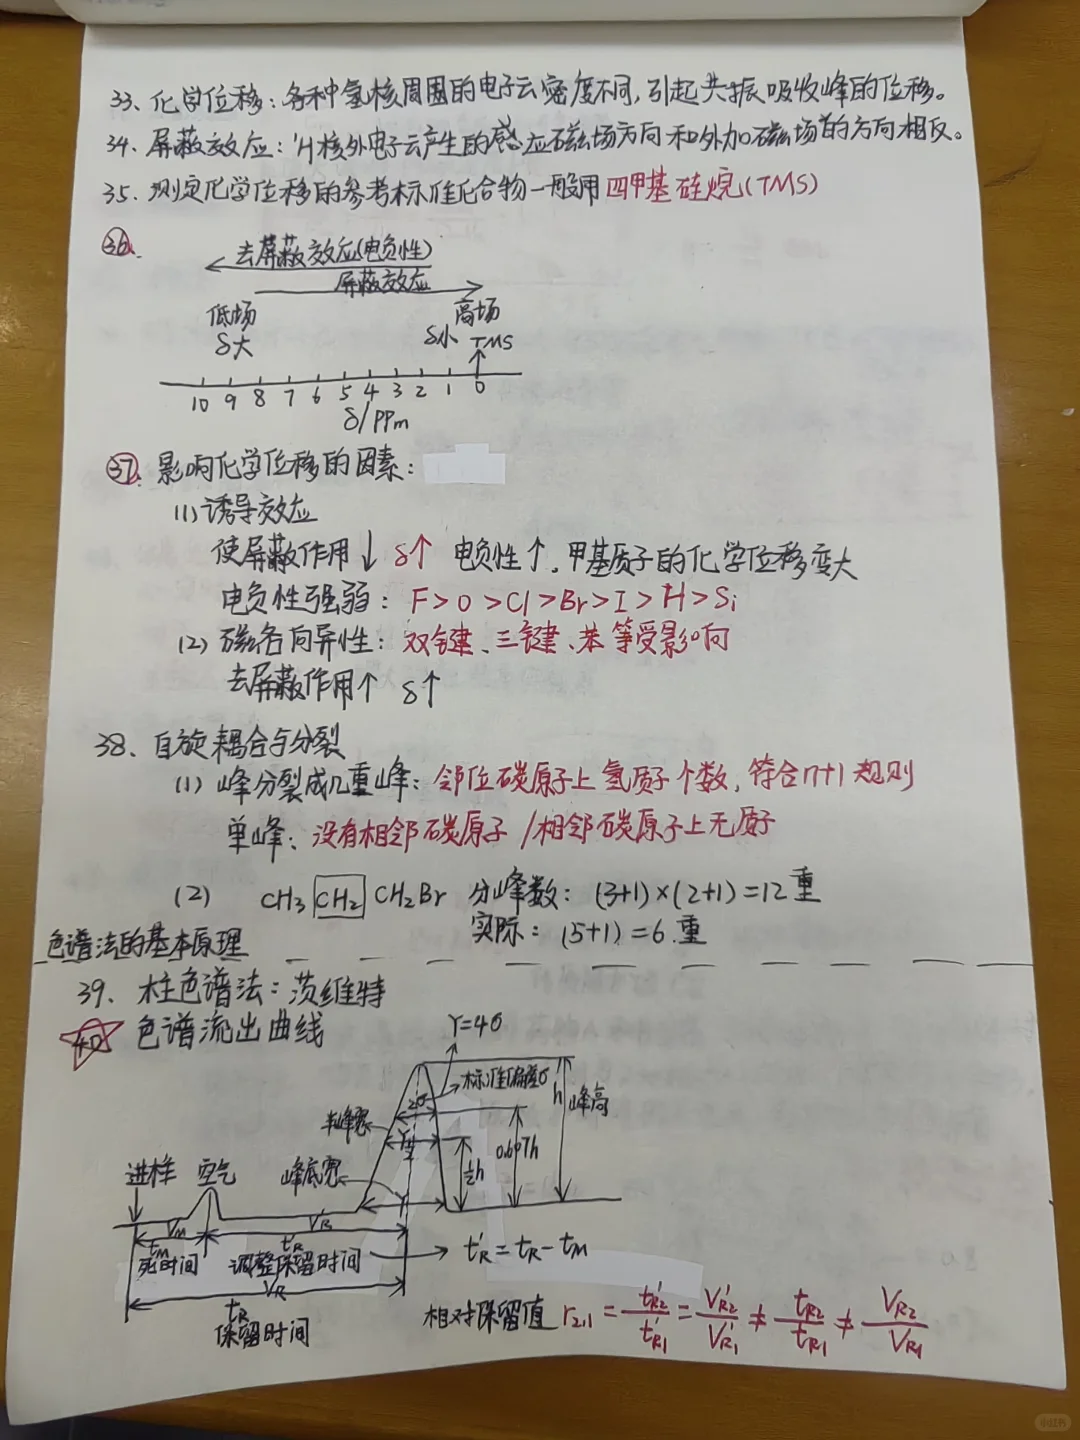 33、化学位移：各种氢核周围的电子云密度不同,引起共振吸收峰的位移。
34、屏蔽效应：¹H核外电子云产生的感应磁场方向和外加磁场的方向相反。
35、测定化学位移的参考标准化合物一般用四甲基硅烷(TMS)
36、
去屏蔽效应(电负性)
屏蔽效应
低场 高场
δ大 δ小 TMS
10 9 8 7 6 5 4 3 2 1 0
δ/PPm
37、影响化学位移的因素：
(1)诱导效应
使屏蔽作用↓ δ↑ 电负性↑,甲基质子的化学位移变大
电负性强弱：F>O>Cl>Br>I>H>Si
(2)磁各向异性：双键、三键、苯等受影响
去屏蔽作用↑ δ↑
38、自旋耦合与分裂
(1)峰分裂成几重峰：邻位碳原子上氢质子个数,符合n+1规则
单峰：没有相邻碳原子/相邻碳原子上无质子
(2) CH₃CH₂CH₂Br 分峰数：(3+1)×(2+1)=12重
实际：(5+1)=6.重
色谱法的基本原理
39、柱色谱法：茨维特
40 色谱流出曲线
Y=4σ
标准偏差σ
2σ h 峰高
半峰宽 Y½ ½h 0.607h
进样 空气 峰底宽 Y
V_M V'_R
t_M t'_R
死时间 调整保留时间 → t'_R=t_R-t_M
V_R
t_R
保留时间
相对保留值 r₂,₁=t'_R2/t'_R1=V'_R2/V'_R1≠t_R2/t_R1≠V_R2/V_R1
小红书